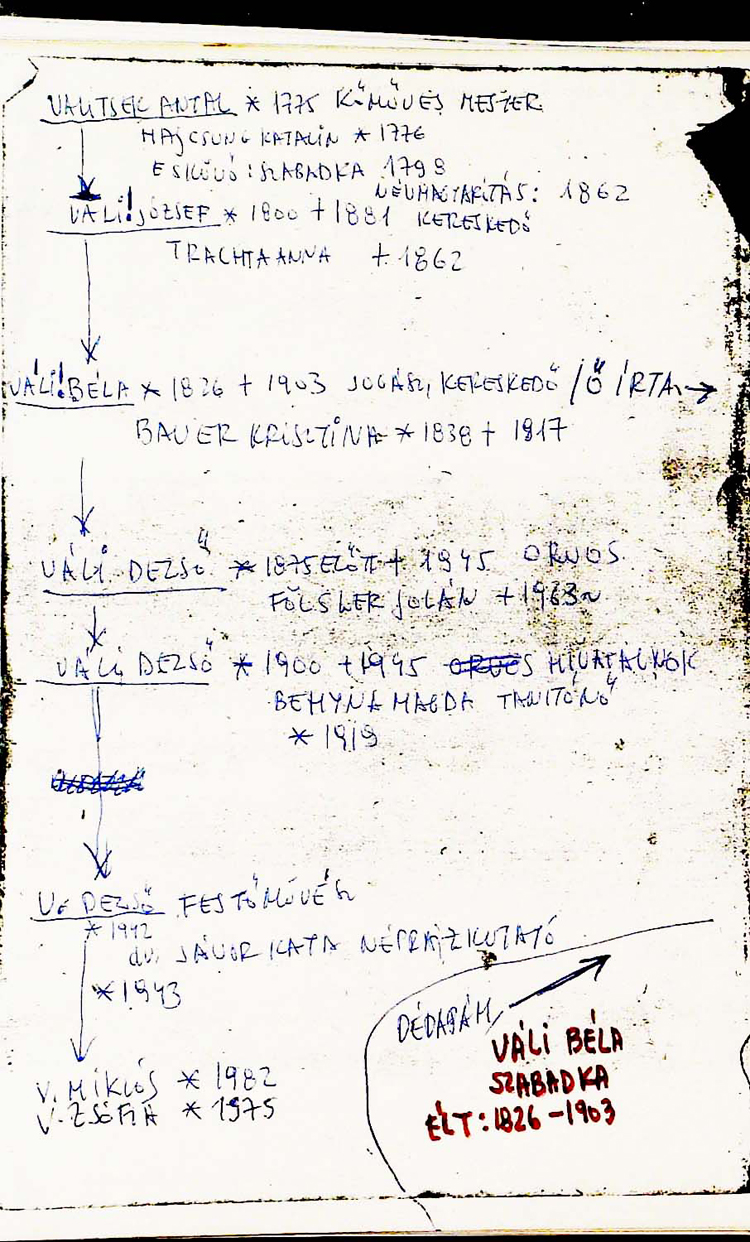 VALITSEK ANTAL * 1775 KŐMŰVES MESTER
KATALIN * 1776
ESKÜVŐ: SZABADKA 1798
NÉVMAGYARÍTÁS: 1862
VÁLI! JÓZSEF * 1800 + 1881 KERESKEDŐ
TRACHTA ANNA + 1862
VÁLI! BÉLA * 1826 + 1903 JOGÁSZ, KERESKEDŐ / Ő ÍRTA →
BAUER KRISZTINA * 1838 + 1917
VÁLI DEZSŐ * 1875 ELŐTT + 1945 ORVOS
JOLÁN + 1963~
VÁLI DEZSŐ * 1900 + 1945 HIVATALNOK
BEHYNA MAGDA TANITÓNŐ
* 1919
V. DEZSŐ FESTŐMŰVÉSZ
* 1942
dr. JÁVOR KATA NÉPRAJZKUTATÓ
* 1943
DÉDAPÁM
VÁLI BÉLA
SZABADKA
ÉLT: 1826-1903
V. MIKLÓS * 1982
V. ZSÓFIA * 1975